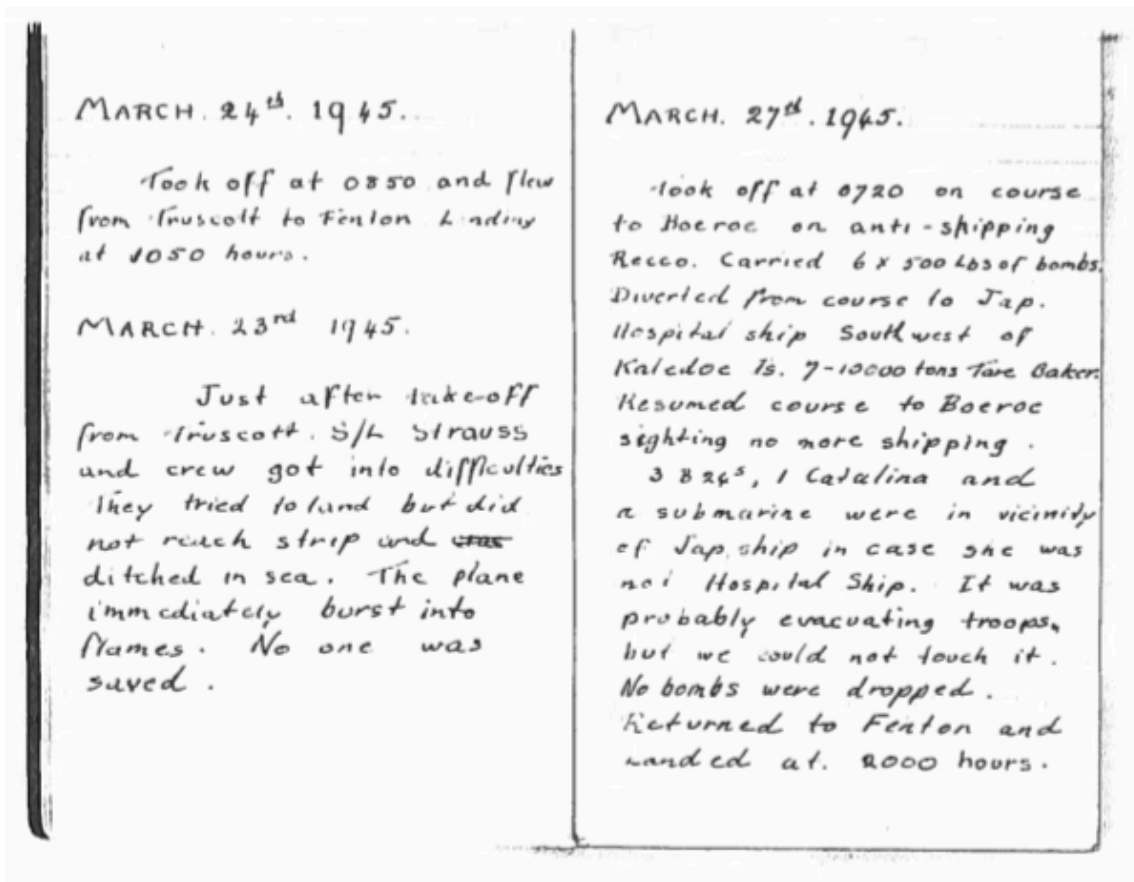 MARCH. 24th. 1945.
Took off at 0850 and flew
from Truscott to Fenton Landing
at 1050 hours.
MARCH. 23rd 1945.
Just after take-off
from Truscott. S/L Strauss
and crew got into difficulties
They tried to land but did
not reach strip and was
ditched in sea. The plane
immediately burst into
flames. No one was
saved.
MARCH. 27th. 1945.
Took off at 0720 on course
to Boeroe on anti-shipping
Recco. Carried 6 x 500 Lbs of bombs.
Diverted from course to Jap.
Hospital ship South west of
Kaledoe Is. 7-10000 tons Tare Baker.
Resumed course to Boeroe
sighting no more shipping.
3 B24s, 1 Catalina and
a submarine were in vicinity
of Jap ship in case she was
not Hospital Ship. It was
probably evacuating troops,
but we could not touch it.
No bombs were dropped.
Returned to Fenton and
Landed at. 2000 hours.